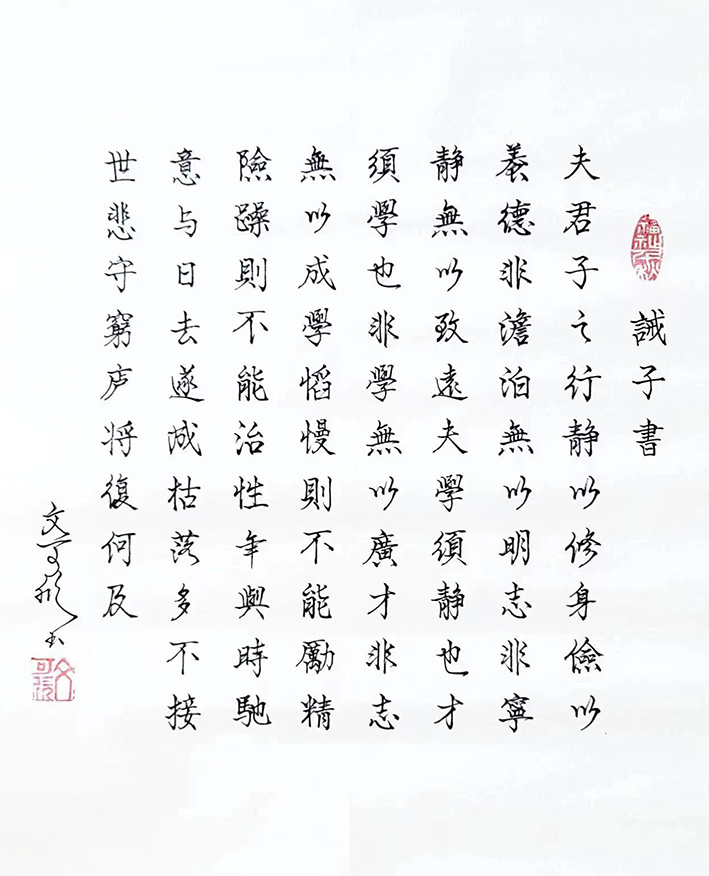 誡子書
夫君子之行静以修身儉以
養德非澹泊無以明志非寧
静無以致遠夫學須静也才
須學也非學無以廣才非志
無以成學慆慢則不能勵精
險躁則不能治性年與時馳
意与日去遂成枯落多不接
世悲守窮庐将復何及